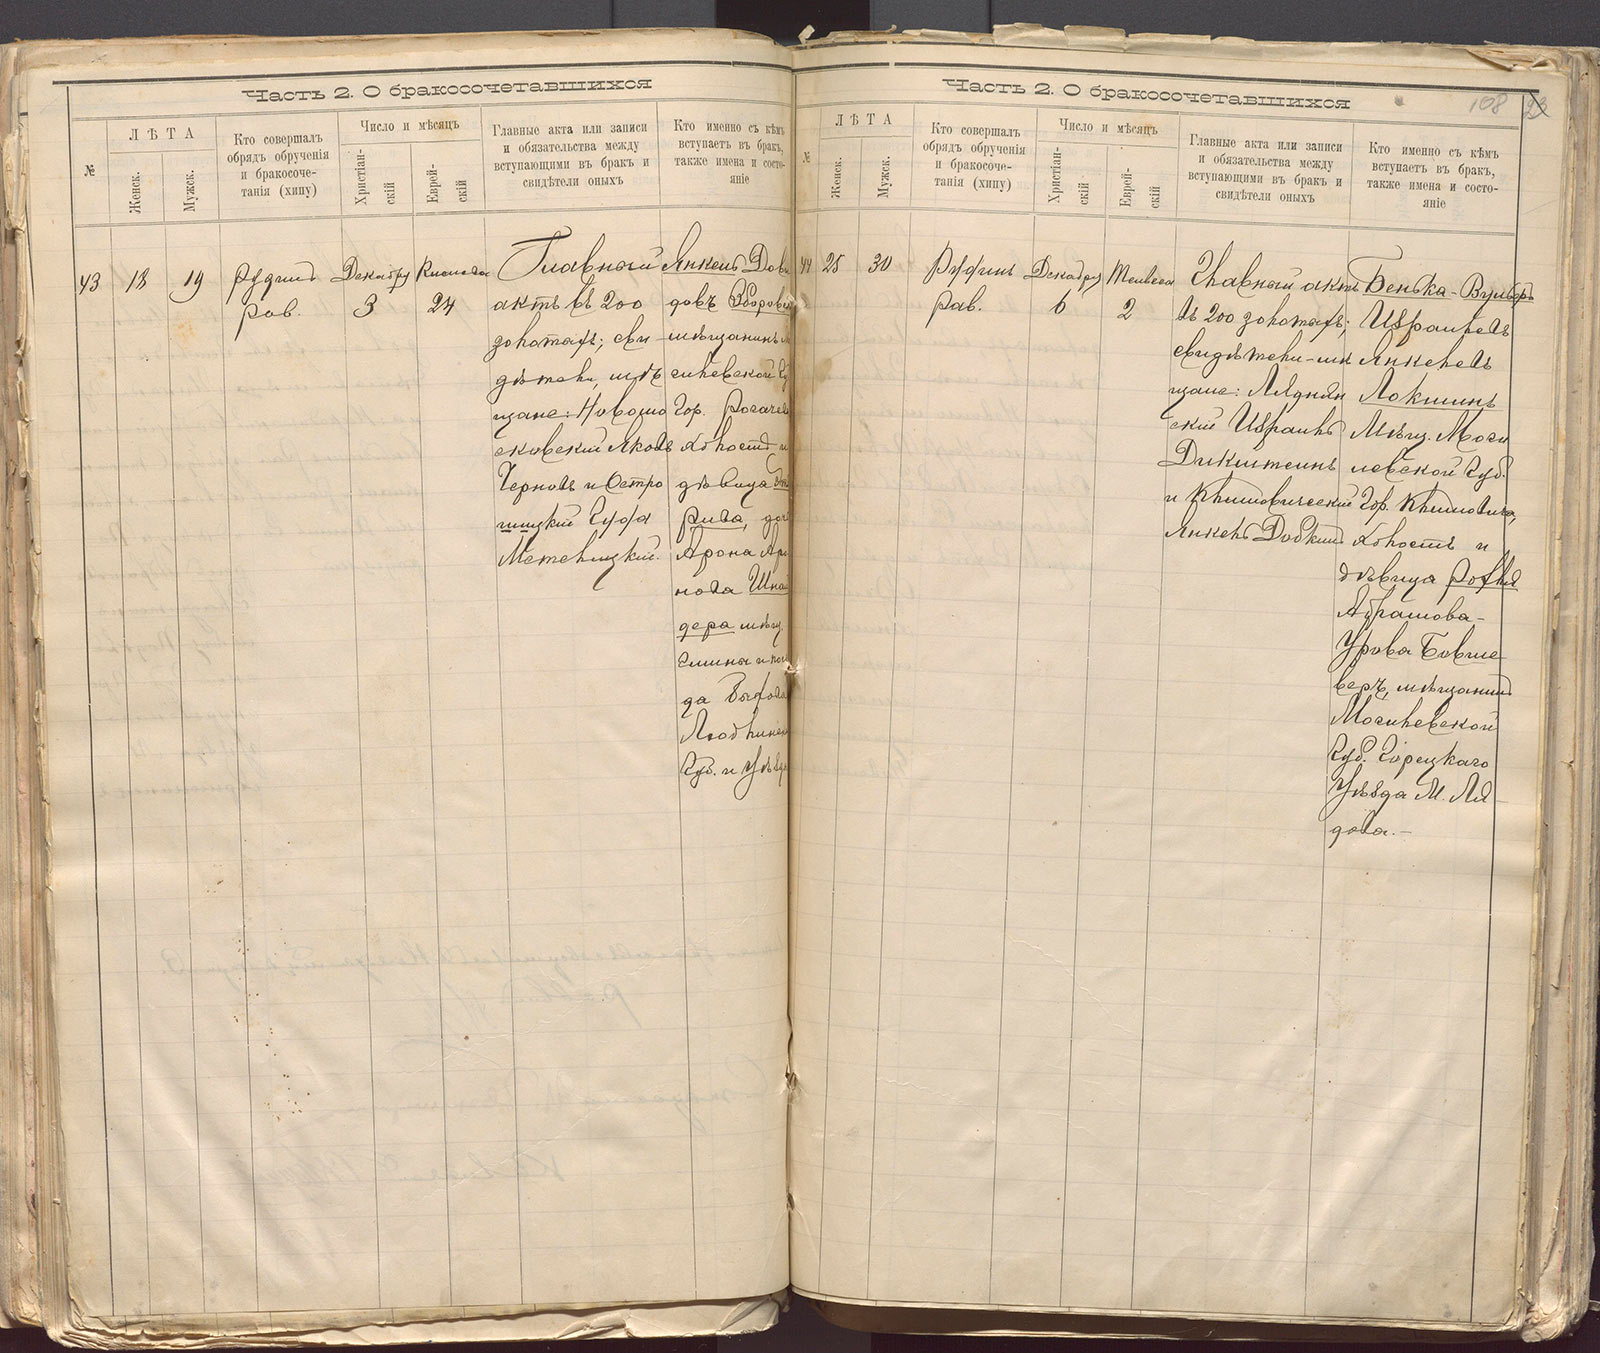 Часть 2. О бракосочетавшихся
№
ЛѢТА
Женск.
Мужск.
Кто совершалъ
обрядъ обрученія
и бракосоче-
танія (хипу)
Число и мѣсяцъ
Христіан-
скій
Еврей-
скій
Главные акта или записи
и обязательства между
вступающими въ бракъ и
свидѣтели оныхъ
Кто именно съ кѣмъ
вступаетъ въ бракъ,
также имена и состо-
яніе
43
18
19
рав.
Декабр
3
24
Главный
актъ въ 200
золотыхъ; сви
дѣтели, мѣ
щане: Новомо
сковскій Яковъ
Черновъ и Остро
шицкій
Янкель Дови
довъ
мѣщанинъ
гилевской
Гор. Рогаче
холостъ и
дѣвица
Рива, до
Арона Аро
нова Шна
дера мѣщ.
да Выхова
Губ. и Уѣзда
Часть 2. О бракосочетавшихся
108
№
ЛѢТА
Женск.
Мужск.
Кто совершалъ
обрядъ обрученія
и бракосоче-
танія (хипу)
Число и мѣсяцъ
Христіан-
скій
Еврей-
скій
Главные акта или записи
и обязательства между
вступающими въ бракъ и
свидѣтели оныхъ
Кто именно съ кѣмъ
вступаетъ въ бракъ,
также имена и состо-
яніе
44
25
30
рав.
Декабр
6
2
Главный актъ
въ 200 золотыхъ;
свидѣтели-мѣ
щане: Ляднян
скій Израиль
Дикштейнъ
и Климовическій
Янкель Добкин
Бенька-Вульфъ
Израилевъ
Янкелевъ
Локшинъ
Мѣщ. Моги
левской Губ.
Гор. Климовичи,
холостъ и
дѣвица
Абрамова-
Урова
веръ, мѣщанин
Могилевской
Губ. Горецкаго
Уѣзда М. Ля
дова.-